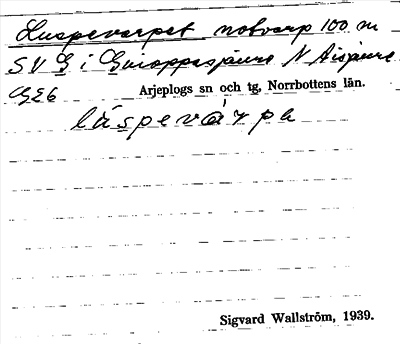 Luspevarpet notvarp 100 m
SV G i Guroppesjaure N Aisjaure
GE6 Arjeplogs sn och tg, Norrbottens län.
lúspevárpɛ
Sigvard Wallström, 1939.